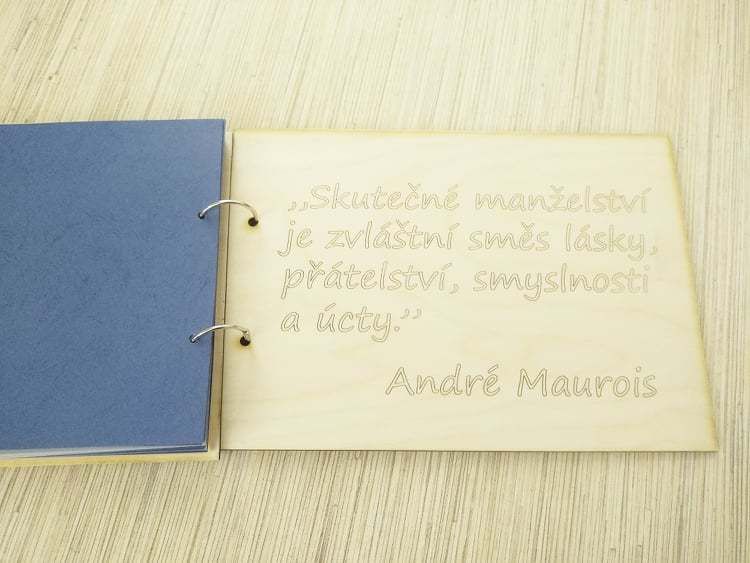 ,,Skutečné manželství
je zvláštní směs lásky,
přátelství, smyslnosti
a úcty.’’
André Maurois